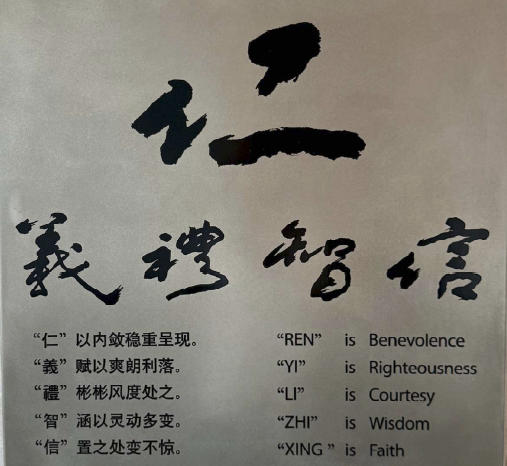 仁
義禮智信
“仁”以内敛稳重呈现。
“義”赋以爽朗利落。
“禮”彬彬风度处之。
“智”涵以灵动多变。
“信”置之处变不惊。
“REN” is Benevolence
“YI” is Righteousness
“LI” is Courtesy
“ZHI” is Wisdom
“XING” is Faith